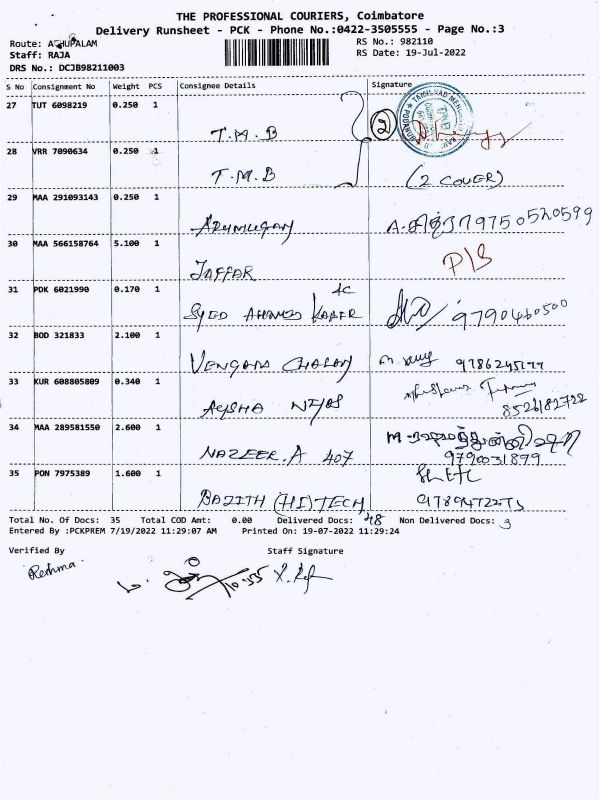 THE PROFESSIONAL COURIERS, Coimbatore
Delivery Runsheet - PCK - Phone No.:0422-3505555 - Page No.:3
Route: ATHUPALAM
RS No.: 982110
Staff: RAJA
RS Date: 19-Jul-2022
DRS No.: DCJB98211003
S No Consignment No Weight PCS Consignee Details Signature
27 TUT 6098219 0.250 1
T.M.B
2
28 VRR 7090634 0.250 1
T.M.B (2 COVER)
29 MAA 291093143 0.250 1
ARUMUGAM A. 9750520599
30 MAA 566158764 5.100 1
JAFFAR P/S
31 PDK 6021990 0.170 1
SYED AHAMED KABER 9790460500
32 BOD 321833 2.100 1
VENGATA CHALAM
33 KUR 608805809 0.340 1
AYSHA 8526182722
34 MAA 289581550 2.600 1
NAZEER.A 407 9790031879
35 PON 7975389 1.600 1
BAJITH (HI) TECH
Total No. Of Docs: 35 Total COD Amt: 0.00 Delivered Docs: 48 Non Delivered Docs: 3
Entered By :PCKPREM 7/19/2022 11:29:07 AM Printed On: 19-07-2022 11:29:24
Verified By Staff Signature
Reshma
10.55